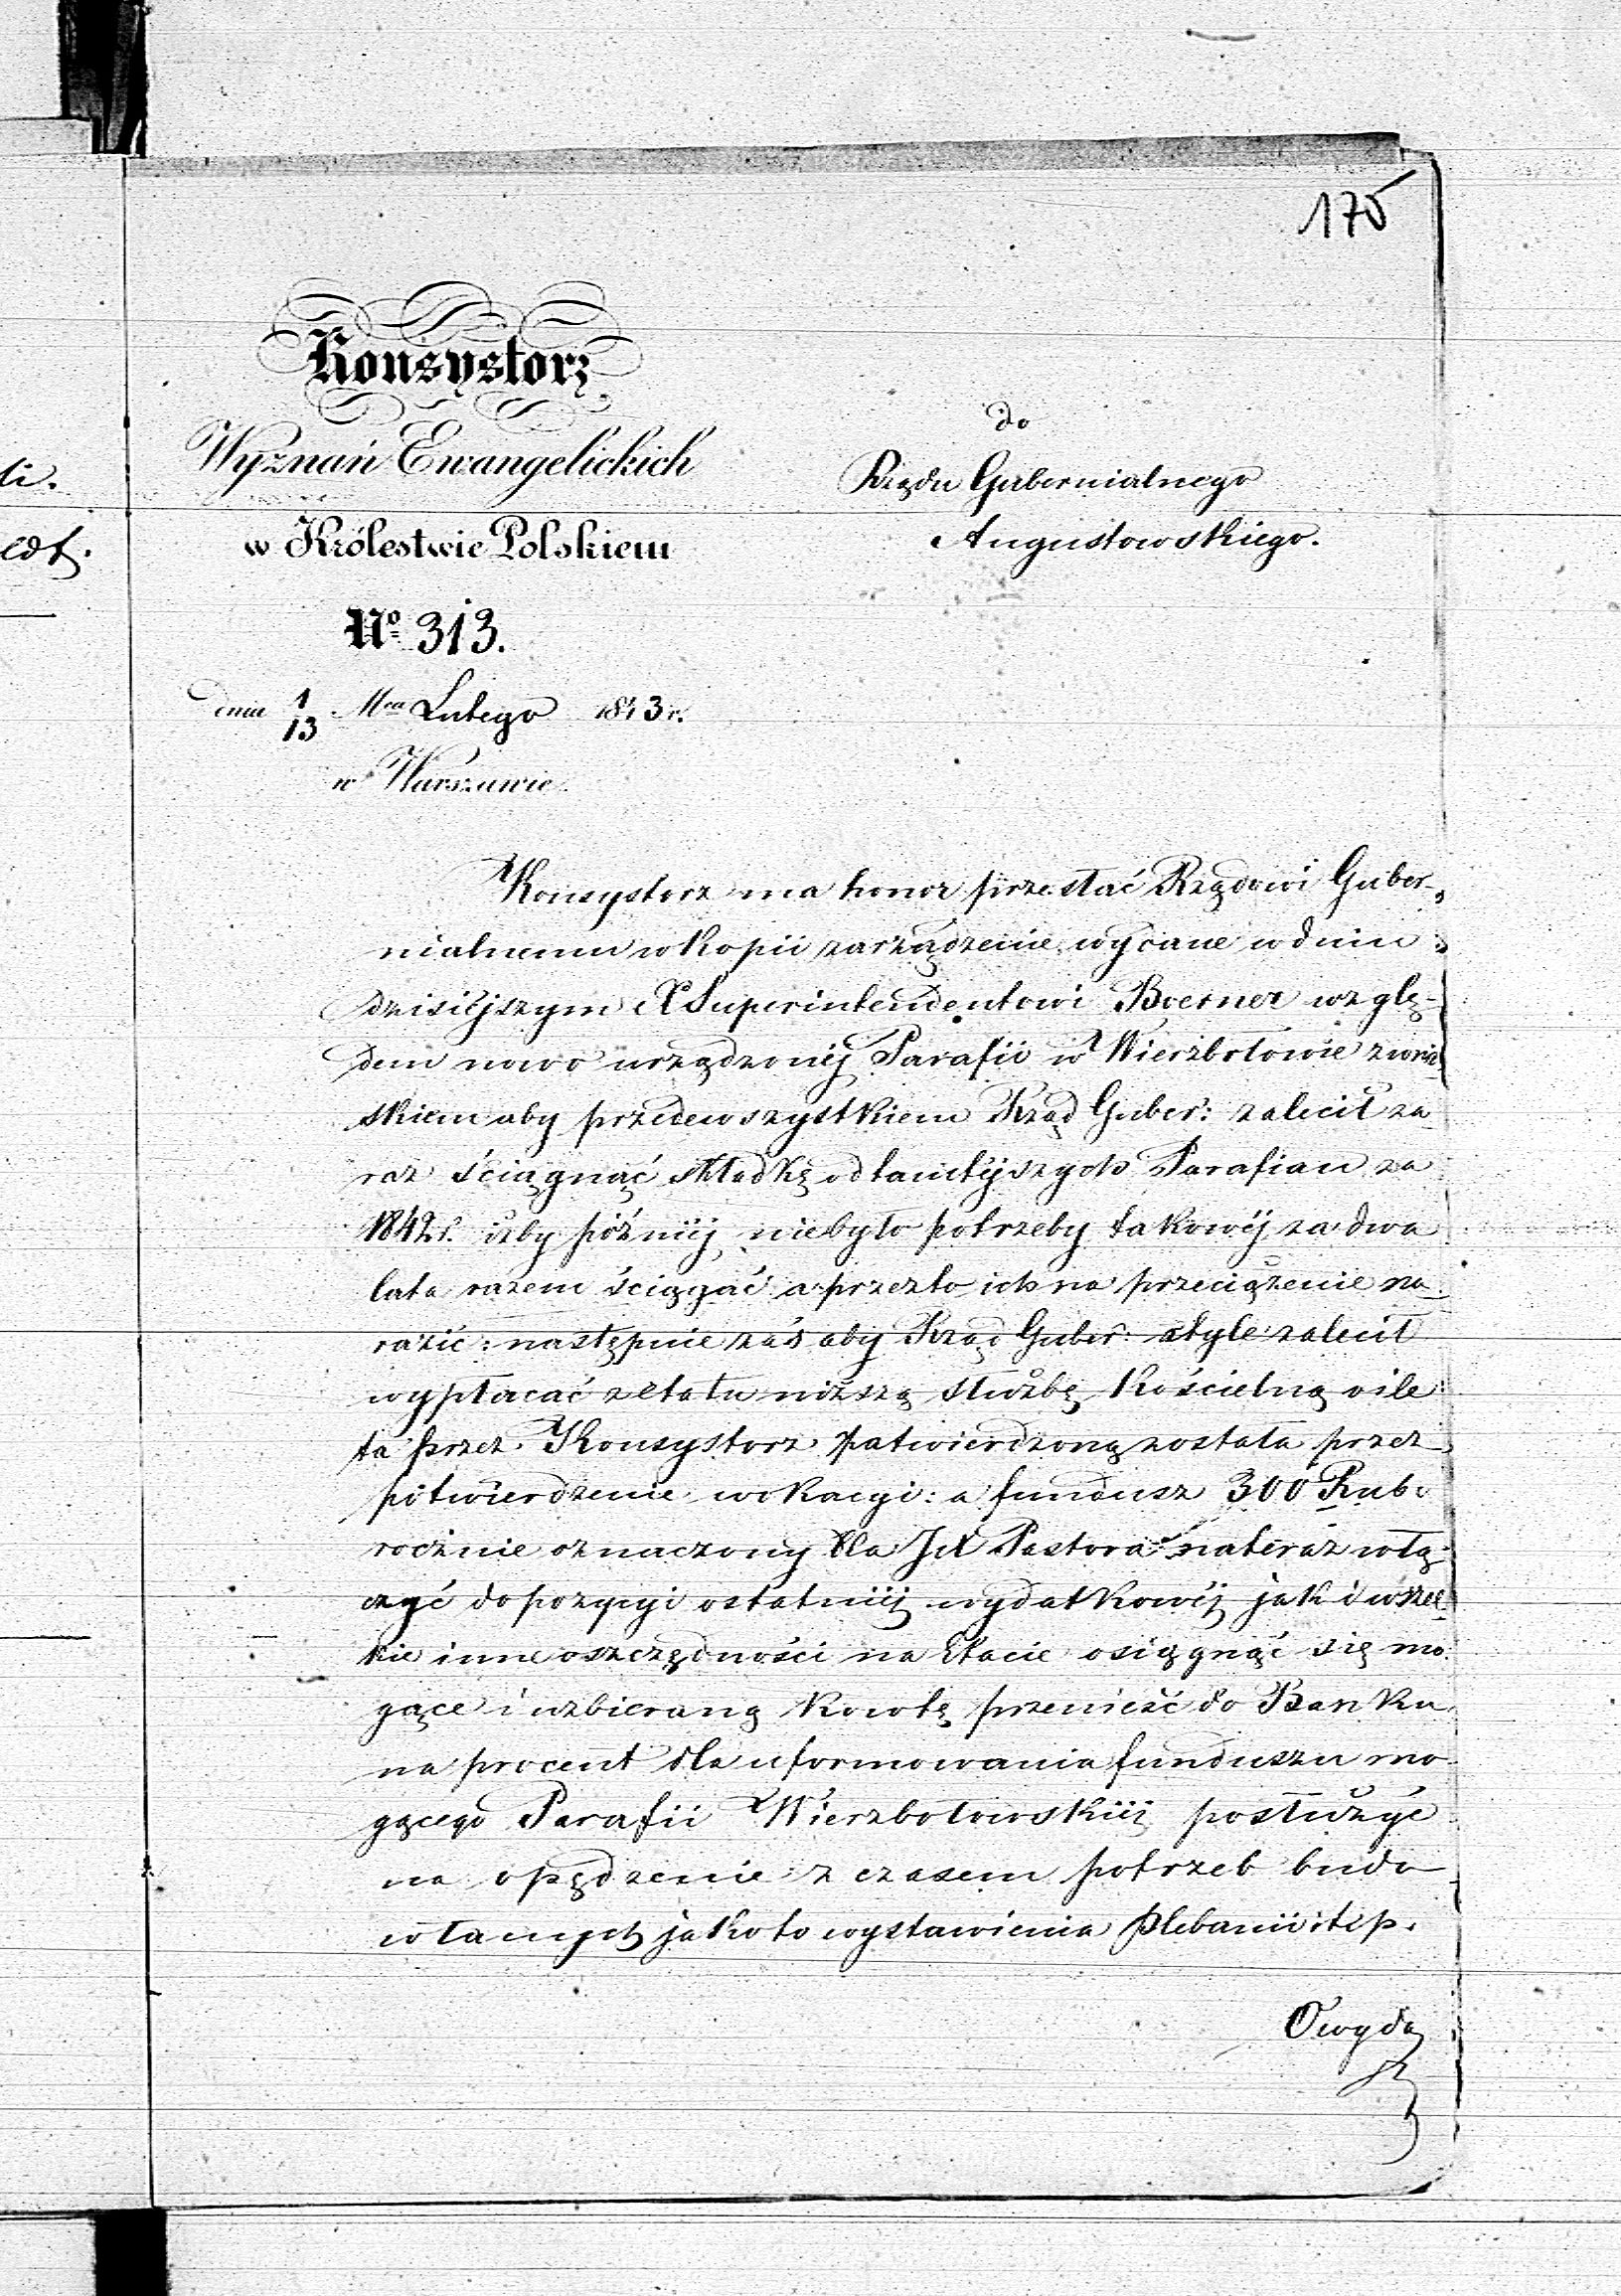 175
Konsystorz
Wyznań Ewangelickich
w Królestwie Polskiem
No 313.
dnia 1/13 Mca Lutego 1843 r.
w Warszawie
do
Rządu Gubernialnego
Augustowskiego.
Konsystorz ma honor przesłać Rządowi Guber-
nialnemu w kopii zarządzenie wydane w dniu
dzisiejszym X Superintendentowi Boerner wzglę-
dem nowo urządzonéj Parafii w Wierzbołowie z wnio-
skiem aby przedewszystkiem Rząd Guber: zalecił za
raz ściągnąć składkę od tamtéjszych Parafian za
1842 r. iżby późniéj niebyło potrzeby takowéj za dwa
lata razem ściągać a przezto ich na przeciążenie na
razić: następnie zaś aby Rząd Guber: otyle zalecił
wypłacać z etatu niższą służbę Kościelną o ile
ta przez Konsystorz patwierdzoną została przez
potwierdzenie wokacyi: a fundusz 300 Rub:
rocznie oznaczony dla JX Pastora nateraz włą-
czyć do pozycyi ostatniéj wydatkowéj jak i wszel-
kie inne oszczędności na Etacie osiągnąć się mo-
gące i uzbieraną kwotę przenieść do Banku
na procent dla uformowania funduszu mo-
gącego Parafii Wierzbołowskiéj posłużyć
na opędzenie z czasem potrzeb budo-
wlanych jako to wystawienia Plebanii itp.
O wyda
li.
edt.